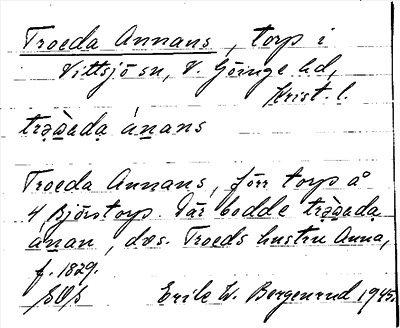 Troeda Annans, torp i
Vittsjö sn, V. Göinge hd,
Krist. l.
trǫạ̀dadạ ánans
Troeda Annans, förr torp å
4 Bjärstorp. Där bodde trǫạ̀dadạ
ánan, dvs. Troeds hustru Anna,
f. 1829.
Erik W. Bergenrud 1945.